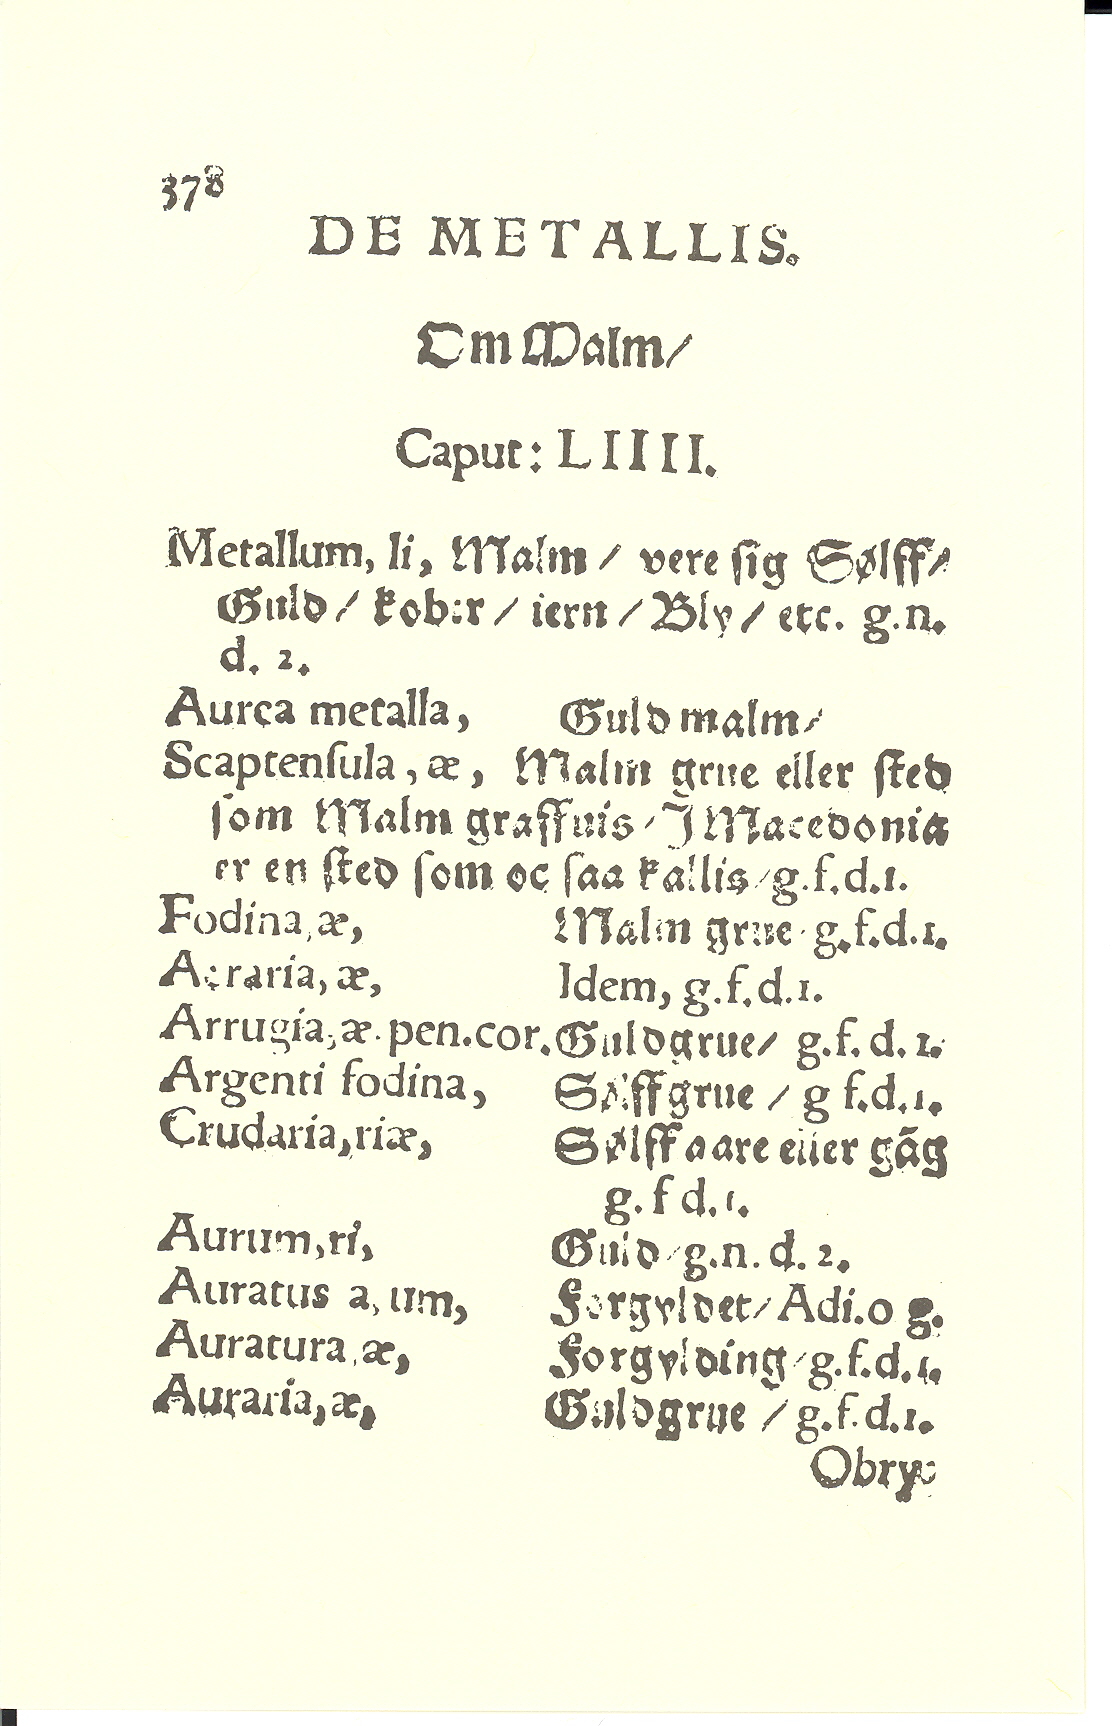 378
DE METALLIS.
Om Malm/
Caput: LIIII.
Metallum, li, Malm / vere sig Sølff/
Guld / kober / iern / Bly / etc. g.n.
d. 2.
Aurea metalla, Guld malm/
Scaptenſula, æ, Malm grue eller ſted
ſom Malm graffuis / J Macedonia
er en ſted ſom oc ſaa kallis / g.f.d.1.
Fodina, æ, Malm grue / g.f.d.1.
Aeraria, æ, Idem, g.f.d.1.
Arrugia, æ. pen.cor. Guldgrue / g.f.d.1.
Argenti fodina, Sølffgrue / g f.d.1.
Crudaria, riæ, Sølff aare eller gãg
g. f d.1.
Aurum, ri, Guld / g.n.d.2.
Auratus a, um, Forgyldet / Adi.o g.
Auratura, æ, Forgylding / g.f.d.1.
Auraria, æ, Guldgrue / g.f.d.1.
Obry: